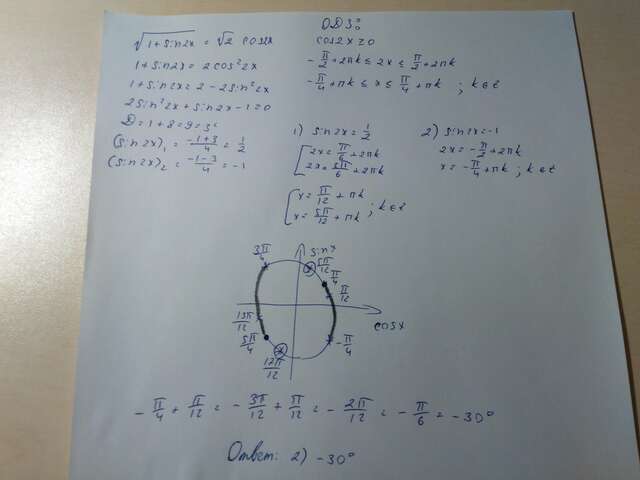 √(1+sin2x) = √2 cos2x
1+sin2x = 2cos²2x
1+sin2x = 2-2sin²2x
2sin²2x+sin2x-1=0
D=1+8=9=3²
(sin2x)₁ = (-1+3)/4 = 1/2
(sin2x)₂ = (-1-3)/4 = -1
ОДЗ:
cos2x≥0
-π/2+2πk ≤ 2x ≤ π/2+2πk
-π/4+πk ≤ x ≤ π/4+πk ; k∈Z
1) sin2x = 1/2
[2x = π/6+2πk
2x = 5π/6+2πk
[x = π/12+πk
x = 5π/12+πk ; k∈Z
2) sin2x=-1
2x = -π/2+2πk
x = -π/4+πk ; k∈Z
sinx
3π/4
5π/12
π/4
π/12
cosx
13π/12
5π/4
17π/12
-π/4
-π/4 + π/12 = -3π/12 + π/12 = -2π/12 = -π/6 = -30°
Ответ: 2) -30°